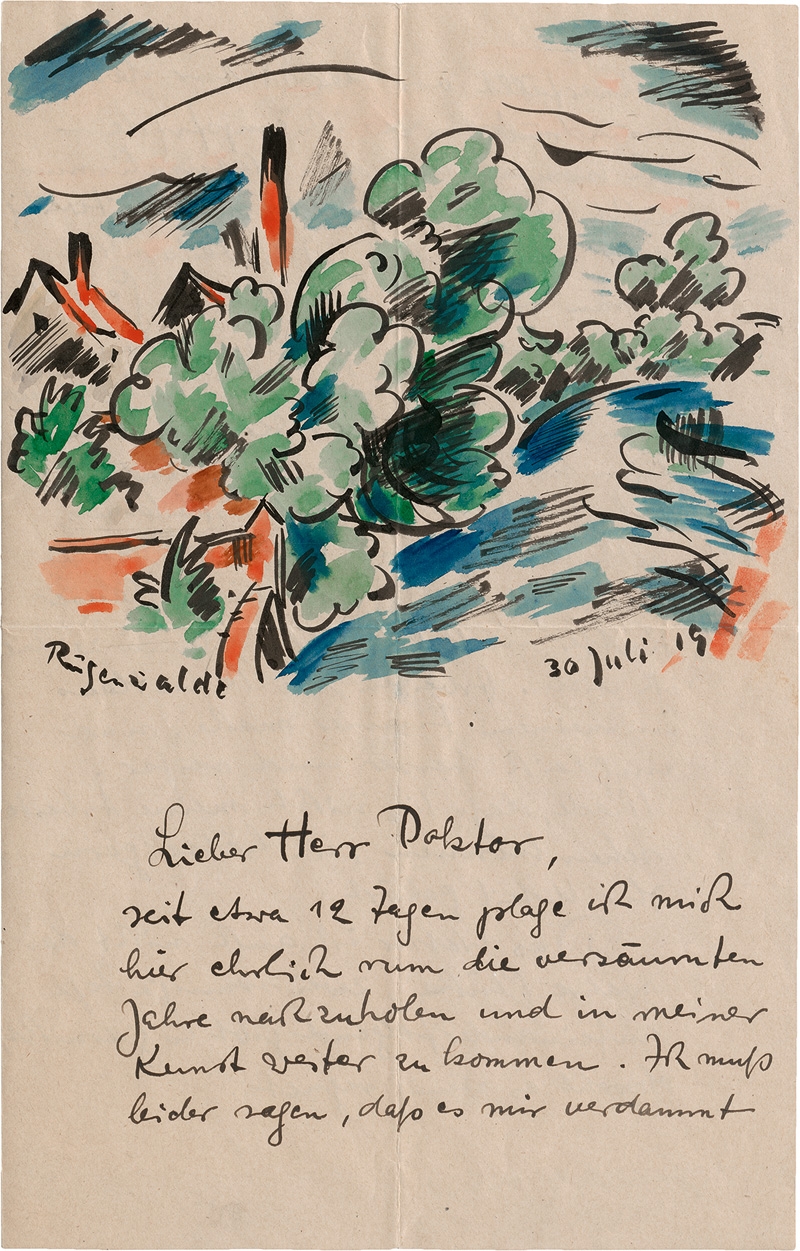 Rügenwalde
30 Juli 19
Lieber Herr Doktor,
seit etwa 12 Tagen plage ich mich
hier ehrlich rum die versäumten
Jahre nachzuholen und in meiner
Kunst weiter zu kommen. Ich muß
leider sagen, daß es mir verdammt